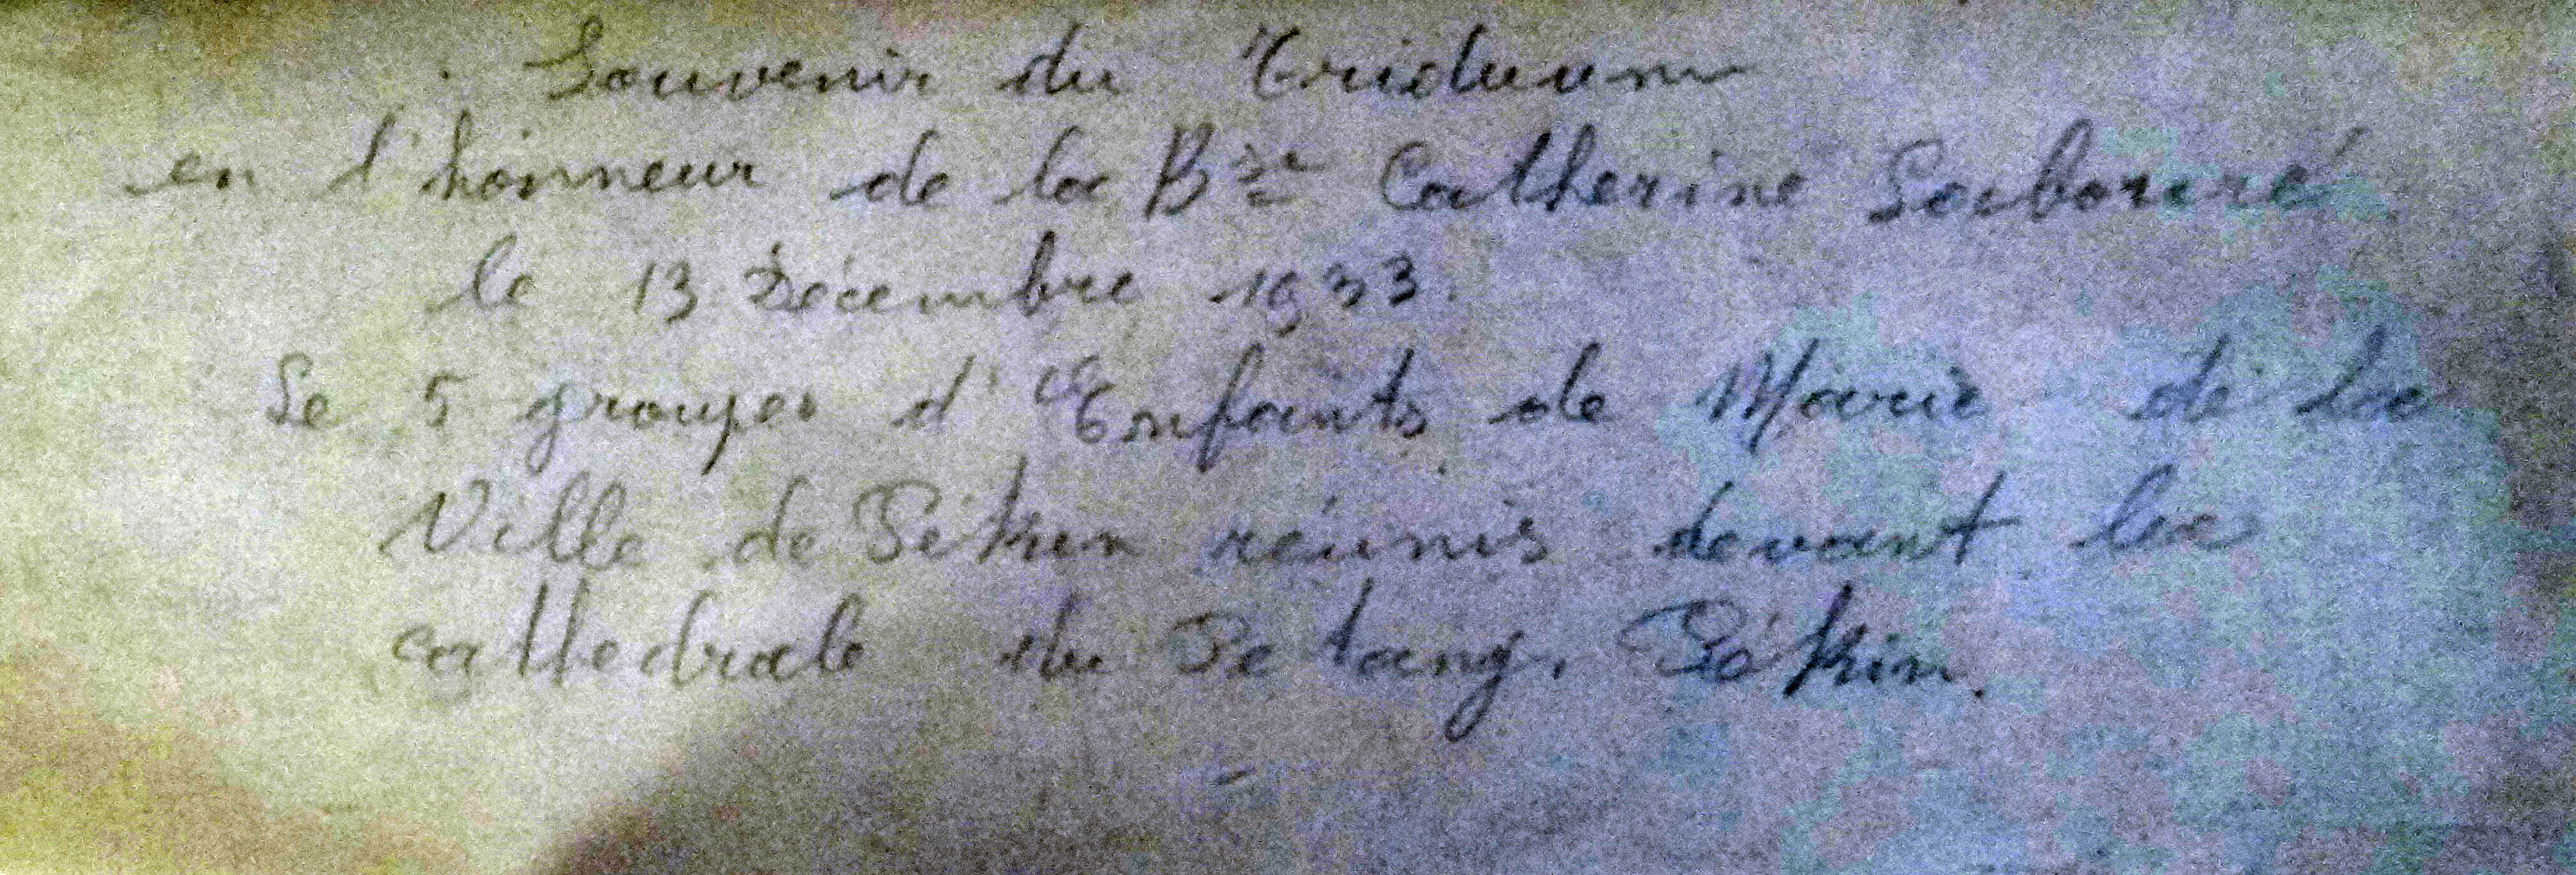 Souvenir du Triduum
en l'honneur de la Bse Catherine Labouré
le 13 Décembre 1933.
Le 5 groupes d'Enfants de Marie de la
Ville de Pékin réunis devant la
cathedrale du Pe tang. Pékin.